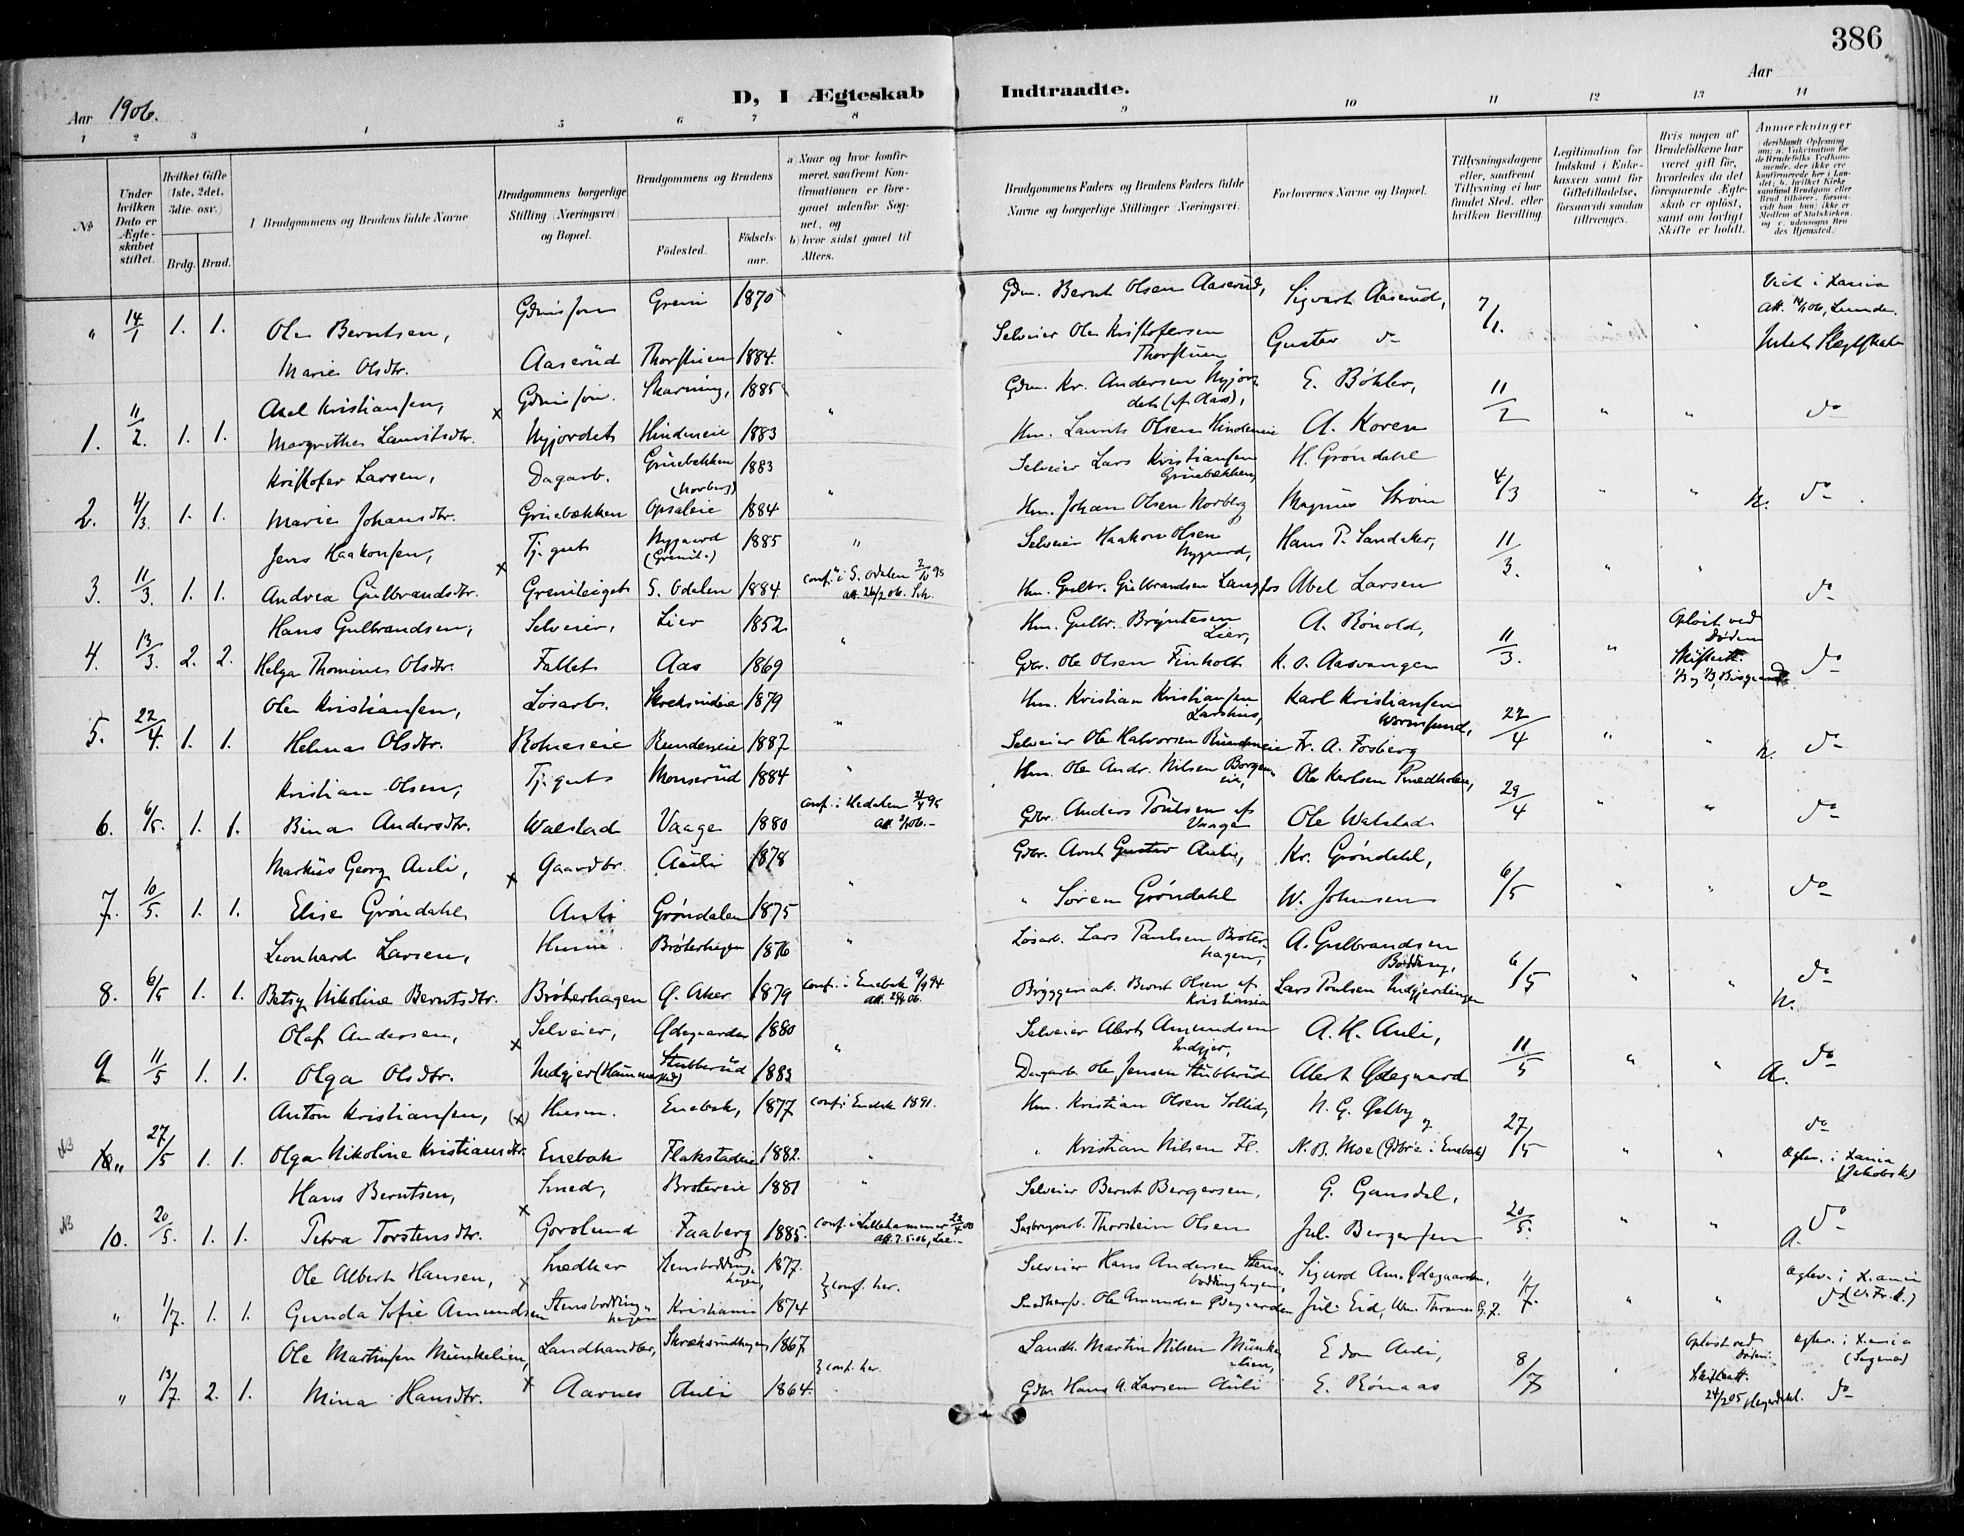 386
Aar 1906.
D, I Ægteskab Indtraadte.
Aar
1 2 3 4 5 6 7 8 9 10 11 12 13 14
No
Under hvilken Dato er Ægteskabet stiftet.
Hvilket Gifte (1ste, 2det, 3die osv.)
Brdg. Brud.
Brudgommens og Brudens fulde Navne
Brudgommens borgerlige Stilling (Næringsvei) og Bopæl.
Brudgommens og Brudens
Fødested. Fødsels-aar.
a Naar og hvor konfirmeret, saafremt Konfirmationen er foregaaet udenfor Sognet, og
b) hvor sidst gaaet til Alters.
Brudgommens Faders og Brudens Faders fulde Navne og borgerlige Stillinger (Næringsvei).
Forlovernes Navne og Bopæl.
Tillysningsdagene eller, saafremt Tillysning ei har fundet Sted, efter hvilken Bevilling.
Legitimation for Indskud i Enkekassen samt for Giftetilladelse, forsaavidt saadan tiltrænges.
Hvis nogen af Brudefolkene har været gift før, hvorledes da det foregaaende Ægteskab er opløst, samt om lovligt Skifte er holdt.
Anmerkninger
" 14/1 1. 1. Ole Berntsen, Gdmsson Greni 1870 Gdm. Bernt Olsen Aaserud, Sigvart Aaserud, 7/1. " " Viet i Xania
Marie Olsdtr. Aaserud Thorstuen 1884. " Selveier Ole Kristofersen Thorstuen Gustav do
1. 11/2. 1. 1. Axel Kristiansen, x Gdmsson. Skarning, 1885 Gdm. Kr. Andersen Nyjordet (af Aas), E. Bøhler, 11/2 " " do
Margrethe Lauritsdtr. Nyjordet Hindereie 1883 " Hm. Laurits Olsen Hindereie A. Koren
2. 4/3. 1. 1. Kristofer Larsen, Dagarb. Grinebækken (Norberg) 1883 Selveier Lars Kristiansen Grinebækken, H. Grøndahl 4/3 " " do
Marie Johansdtr. Grinebækken Opsaleie 1884 " Hm. Johan Olsen Norberg Magnus Strøm
3. 11/3. 1. 1. Jens Haakonsen, x Tj.gut Nygaard 1885 " Selveier Haakon Olsen Nygaard, Hans P. Sandaker, 11/3. " " do
Andrea Gulbrandsdtr. Greniteiget S. Odalen 1884 conf. i S. Odalen Hm. Gulbr. Gulbrandsen Langfos Abel Larsen
4. 13/3. 2. 2. Hans Gulbrandsen, Selveier, Lier 1852 Hm. Gulbr. Bryntesen Lier, A. Rønold, 11/3. " Opløst ved Døden do
Helga Thomine Olsdtr. Fallet Aas 1869 " Gdbr. Ole Olsen Finholt K. O. Aasvangen
5. 22/4. 1. 1. Ole Kristiansen, Løsarb. 1879 Hm. Kristian Kristiansen Larshus, Karl Kristiansen Wormsund, 22/4 " " do
Helma Olsdtr. Rundereie 1887 " Selveier Ole Halvorsen Rundereie Fr. A. Fosberg
6. 6/5. 1. 1. Kristian Olsen, Tj.gut Monserud 1884 " Hm. Ole Andr. Nilsen Borgeneie, Ole Karlsen 29/4 " " do
Bina Andersdtr. Walstad Vaage 1880 Gdbr. Anders Poulsen af Vaage Ole Walstad
7. 10/5. 1. 1. Markus Georg Auli, x Gaardbr. Auli 1878 Gdbr. Arnt Gustav Auli, Kr. Grøndahl, 6/5 " " do
Elise Grøndahl Auli Grøndalen 1875 " " Søren Grøndahl W. Johnsen
8. 6/5 1. 1. Leonhard Larsen, Husm. Brøterhagen 1876 " Løsarb. Lars Paulsen Brøterhagen, A. Gulbrandsen Bødding, 6/5 " " do
Betsy Nikoline Berntsdtr. Brøterhagen Ø. Aker 1879 conf. i Enebak 9/9 94 Bryggeriarb. Bernt Olsen af Kristiania Lars Poulsen Indgjerdingen
9 11/5 1. 1. Olaf Andersen, x Selveier, Ødegaarden 1880 Selveier Abert Amundsen Indgjer, A. H. Auli, 11/5 " " do
Olga Olsdtr. Indgjer Stubberud 1883 " Dagarb. Ole Jensen Stubberud Abert Ødegaard A.
" 27/5 1. 1. Anton Kristiansen, (x) Husm. Enebak, 1877 conf. i Enebak 1891. Hm. Kristian Olsen Sollid, N. G. Østby 27/5 " " do
Olga Nikoline Kristiansdtr. Enebak Flakstadeie 1882. " " Kristian Nilsen Fl. N. B. Moe (Gdbr. i Enebak) Ægtev. i Xania (Jakobs K.)
NB 10. 20/5. 1. 1. Hans Berntsen, x Smed, Brøtereie 1881 " Selveier Bernt Bergersen, G. Gansdal, 20/5. " " do
Petra Torstensdtr. Gorolund Faaberg 1885. conf. i Lillehammer Thorstein Olsen Jul. Bergersen A.
" 1/7. 1. 1. Ole Albert Hansen, x Snedker Stensboddinghagen, 1877. } conf. her. Selveier Hans Andersen Stensboddinghagen, Sigurd Am. Ødegaarden, 1/7. " " Ægtev. i Xania
Gunda Sofie Amundsen Stensboddinghagen Kristiania 1874 Ole Amundsen Ødegaarden Jul. Eid,
" 13/7. 2. 1. Ole Martinsen Munkelien, x Landhandler, 1867 } conf. her. Landh. Martin Nilsen Munkelien, Edon Auli, 8/7 " Opløst ved Døden. Ægtev. i Xania
Mina Hansdtr. Aarnes Auli 1864. Gdbr. Hans A. Larsen Auli E. Rønaas do